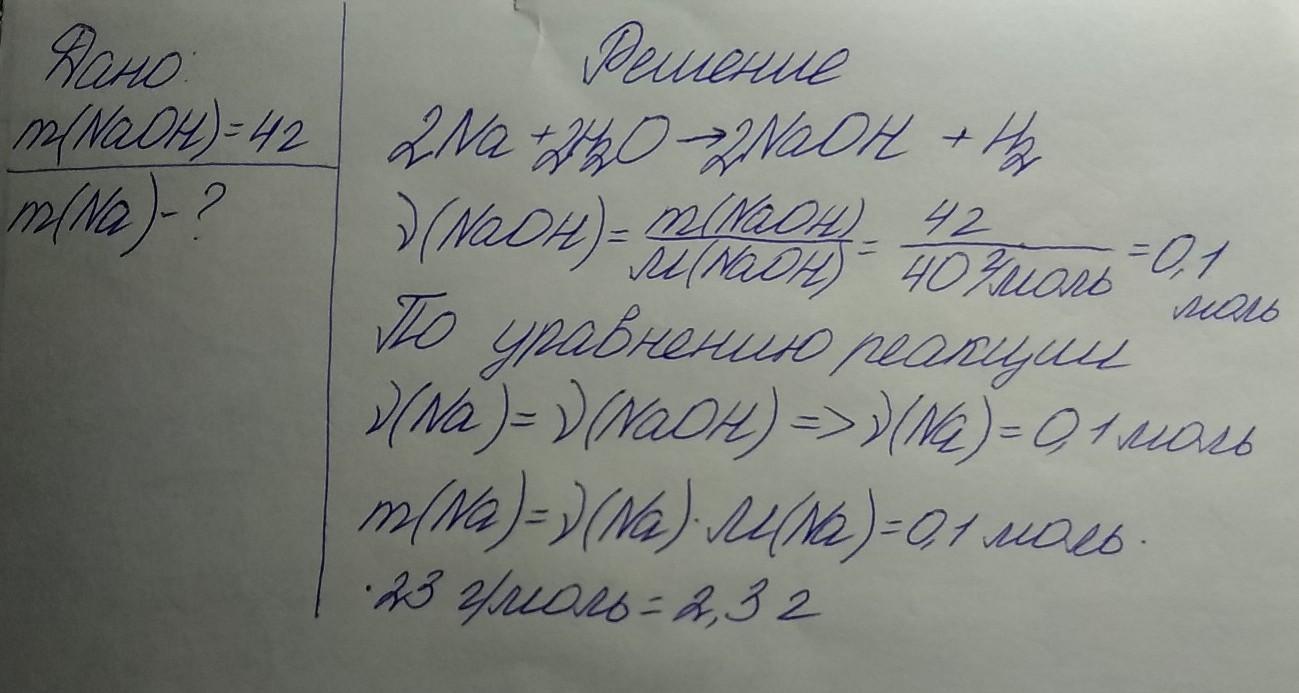 Дано:
m(NaOH)=4г
m(Na)-?
Решение
2Na+2H₂O→2NaOH + H₂
ν(NaOH)= m(NaOH)/M(NaOH) = 4г/40 г/моль =0,1 моль
По уравнению реакции
ν(Na)=ν(NaOH)=>ν(Na)=0,1 моль
m(Na)=ν(Na)·M(Na)=0,1 моль·
·23 г/моль=2,3 г